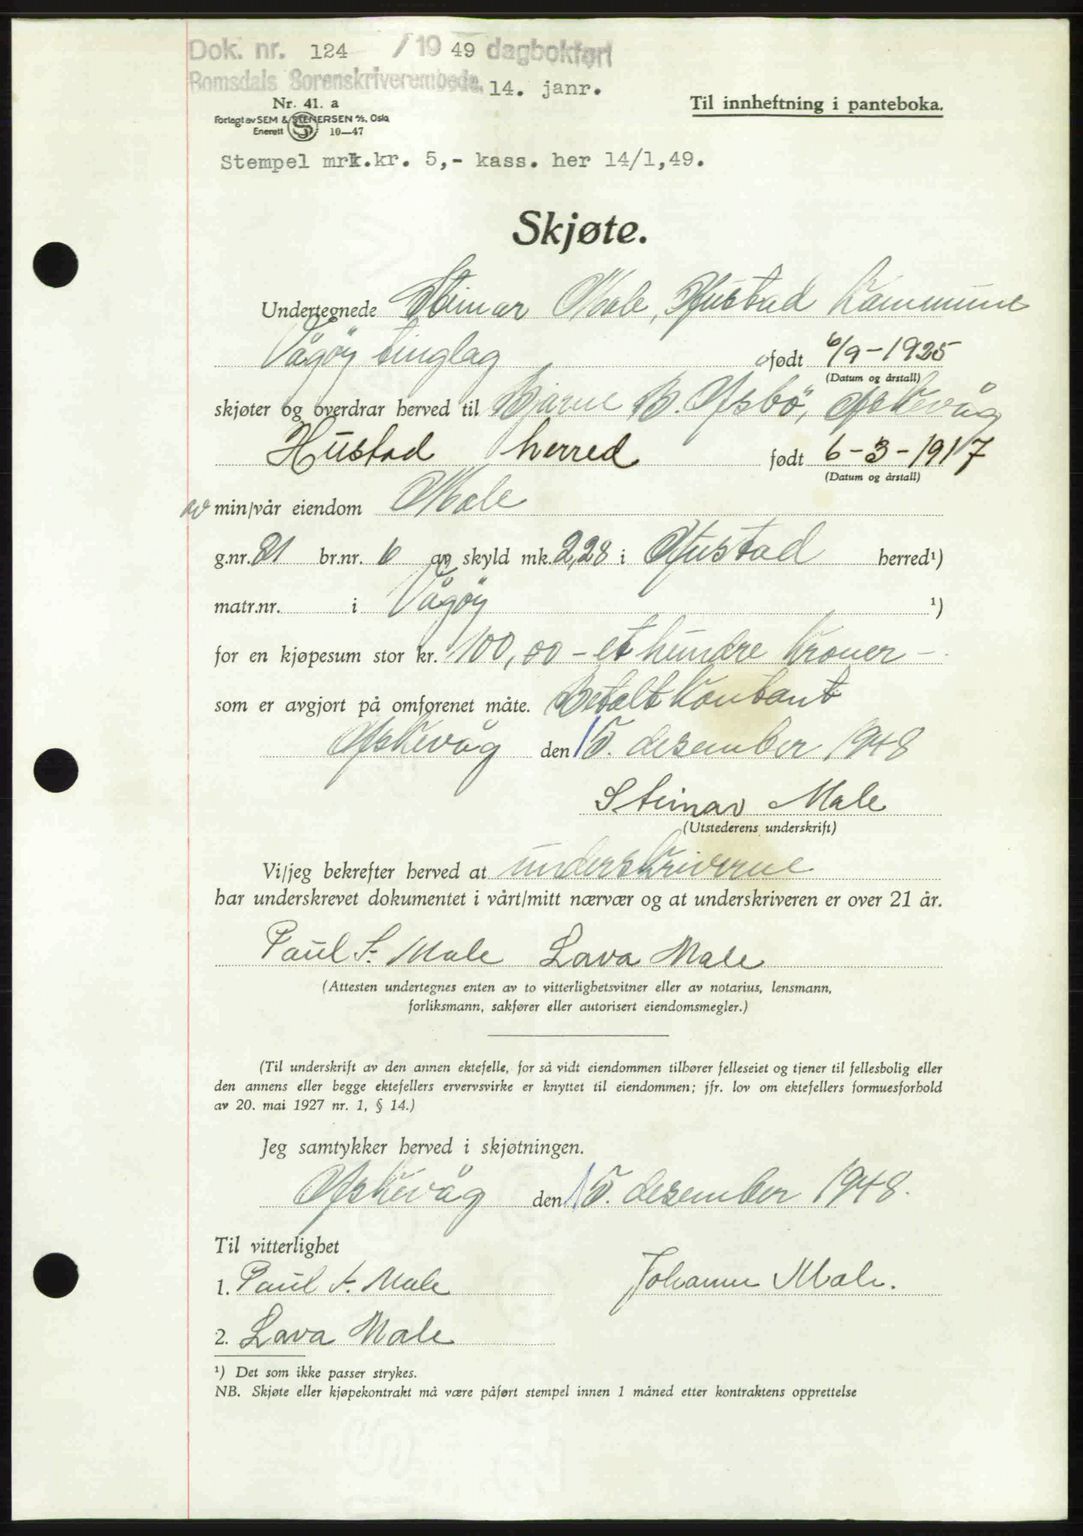 Dok. nr. 124 / 19 49 dagbokført
Romsdals Sorenskriverembede. 14. janr.
Nr. 41. a
Forlagt av SEM & STENERSEN A/S, Oslo
Enerett S 10—47
Til innheftning i panteboka.
Stempel mrk.kr. 5,- kass. her 14/1,49.
Skjøte.
Undertegnede Steinar Male, Hustad Kommune
Vågøy tinglag født 6/9-1925
(Datum og årstall)
skjøter og overdrar herved til Bjarne B. Ofsbö, Ofskevåg
Hustad herred født 6-3-1917
(Datum og årstall)
av min/vår eiendom Male
g.nr. 81 br.nr. 6 av skyld mk. 2,28 i Hustad herred¹)
matr.nr. i Vågøy ¹)
for en kjøpesum stor kr. 100,00 - et hundre kroner -
som er avgjort på omforenet måte. Betalt kontant
Ofskevåg den 15. desember 1948
Steinar Male
(Utstederens underskrift)
Vi/jeg bekrefter herved at underskriverne
har underskrevet dokumentet i vårt/mitt nærvær og at underskriveren er over 21 år.
Paul S. Male Lava Male
(Attesten undertegnes enten av to vitterlighetsvitner eller av notarius, lensmann,
forliksmann, sakfører eller autorisert eiendomsmegler.)
(Til underskrift av den annen ektefelle, for så vidt eiendommen tilhører felleseiet og tjener til fellesbolig eller
den annens eller begge ektefellers ervervsvirke er knyttet til eiendommen; jfr. lov om ektefellers formuesforhold
av 20. mai 1927 nr. 1, § 14.)
Jeg samtykker herved i skjøtningen.
Ofskevåg den 15. desember 1948.
Til vitterlighet
1. Paul S. Male Johanne Male.
2. Lava Male
¹) Det som ikke passer strykes.
NB. Skjøte eller kjøpekontrakt må være påført stempel innen 1 måned etter kontraktens opprettelse